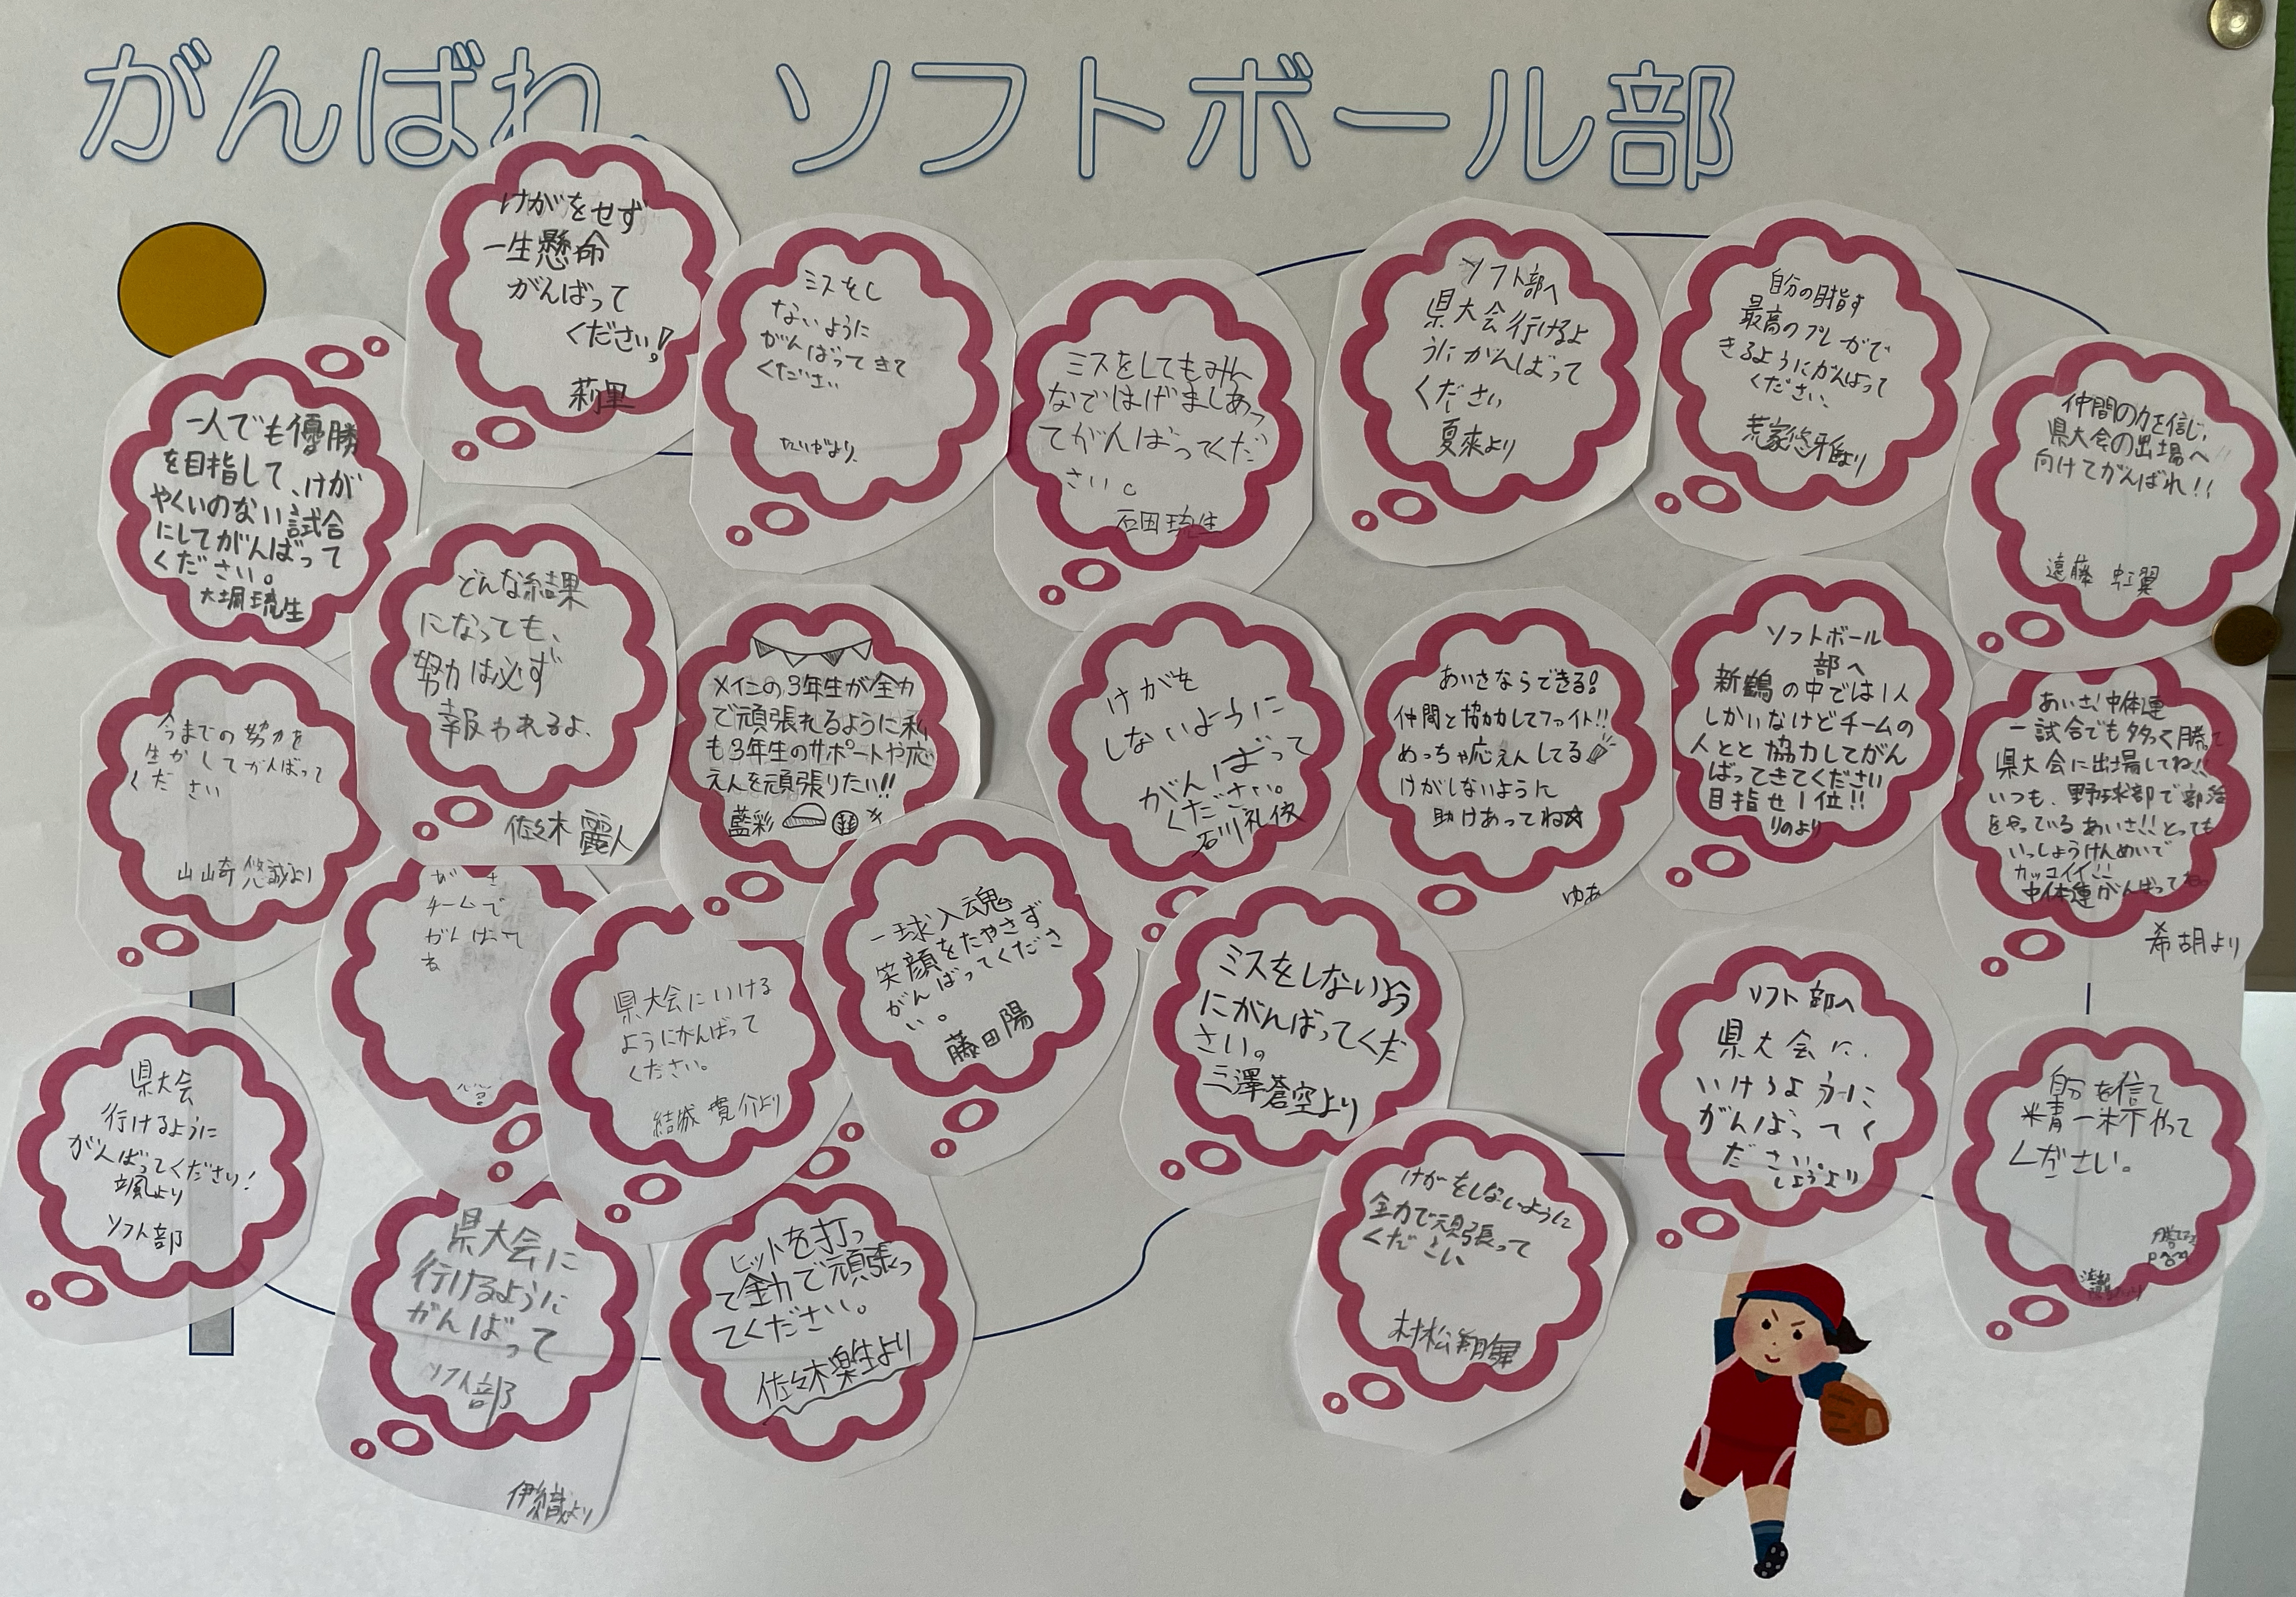 がんばれ、ソフトボール部
けがをせず
一生懸命
がんばって
ください!
莉里
ミスをし
ないように
がんばってきて
ください
たいがより
ミスをしてもみん
なではげましあっ
てがんばってくだ
さい。
石田琉生
ソフト部へ
県大会行けるよ
うにがんばって
ください
夏來より
自分の目指す
最高のプレーがで
きるようにがんばって
ください、
荒家悠雅より
仲間の力を信じ、
県大会の出場へ
向けてがんばれ!!
遠藤 虹翼
一人でも優勝
を目指して、けが
やくいのない試合
にしてがんばって
ください。
大堀琉生
どんな結果
になっても、
努力は必ず
報われるよ、
佐々木 麗人
メインの3年生が全力
で頑張れるように私
も3年生のサポートや応
えんを頑張りたい!!
藍彩
けがを
しないように
がんばって
ください。
石川礼
あいさならできる!
仲間と協力してファイト!!
めっちゃ応えんしてる
けがしないように
助けあってね☆
ゆあ
ソフトボール
部へ
新鶴の中では1人
しかいなけどチームの
人とと協力してがん
ばってきてください
目指せ1位!!
りのより
あいさ!中体連
一試合でも多っく勝って
県大会に出場してね!!
いつも、野球部で部活
をやっているあいさ!!とっても
いっしょうけんめいで
カッコイイ!!
中体連がんばってねっ
希胡より
今までの努力を
生かしてがんばって
ください
山崎悠誠より
チームで
がんばって
ね
県大会にいける
ようにがんばって
ください。
結城 寛介より
一球入魂
笑顔をたやさず
がんばってくださ
い。
藤田陽
ミスをしないよう
にがんばってくだ
さい。
三澤蒼空より
ソフト部へ
県大会に、
いけるように
がんばってく
ださい。
しょうより
自分を信て
精一杯やって
ください。
県大会
行けるように
がんばってください!
颯より
ソフト部
県大会に
行けるように
がんばって
ソフト部
伊織より
ヒットを打っ
て全力で頑張っ
てください。
佐々木楽生より
けがをしないように
全力で頑張って
ください
村松翔